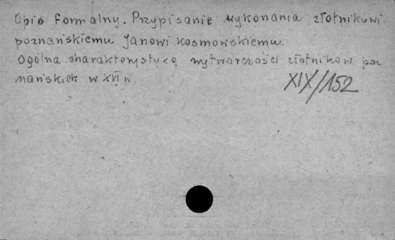 Opis formalny. Przypisanie wykonania złotnikowi
poznańskiemu Janowi Kosmowskiemu.
Ogólna charakterystyka wytwórczości złotników poz
nańskich w XVI w.
XIX/152